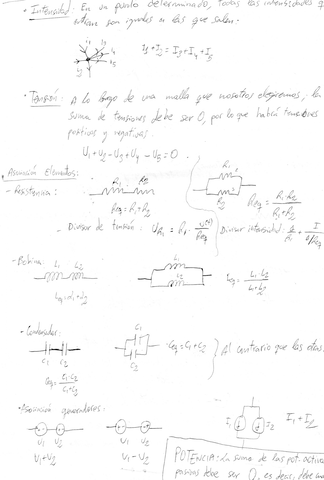 · Intensidad: En un punto determinado, todas las intensidades q
entran son iguales a las que salen.
I1 I3 I4 I5 I2
I1+I2=I3+I4+I5
· Tensión: A lo largo de una malla que nosotros elegiremos, la
suma de tensiones debe ser 0, por lo que habrá tensiones
positivas y negativas.
U1+U2-U3+U4-U5=0
· Asociación Elementos:
- Resistencia: R1 R2 R1 R2
Req=R1+R2 Req=R1·R2/R1+R2
- Divisor de tensión: UR1=R1· Divisor intensidad:
- Bobina: L1 L2 L1 L2 Leq=L1·L2/L1+L2
Leq=L1+L2
- Condensador: C1 C2 C1 C2 Ceq=C1+C2 Al contrario que las otras.
Ceq=C1·C2/C1+C2
· Asociación generadores:
U1 U2 U1 U2 I1 I2 I1+I2
U1+U2 U1-U2
POTENCIA: La suma de las pot. activa
pasivas debe ser 0, es decir, debe